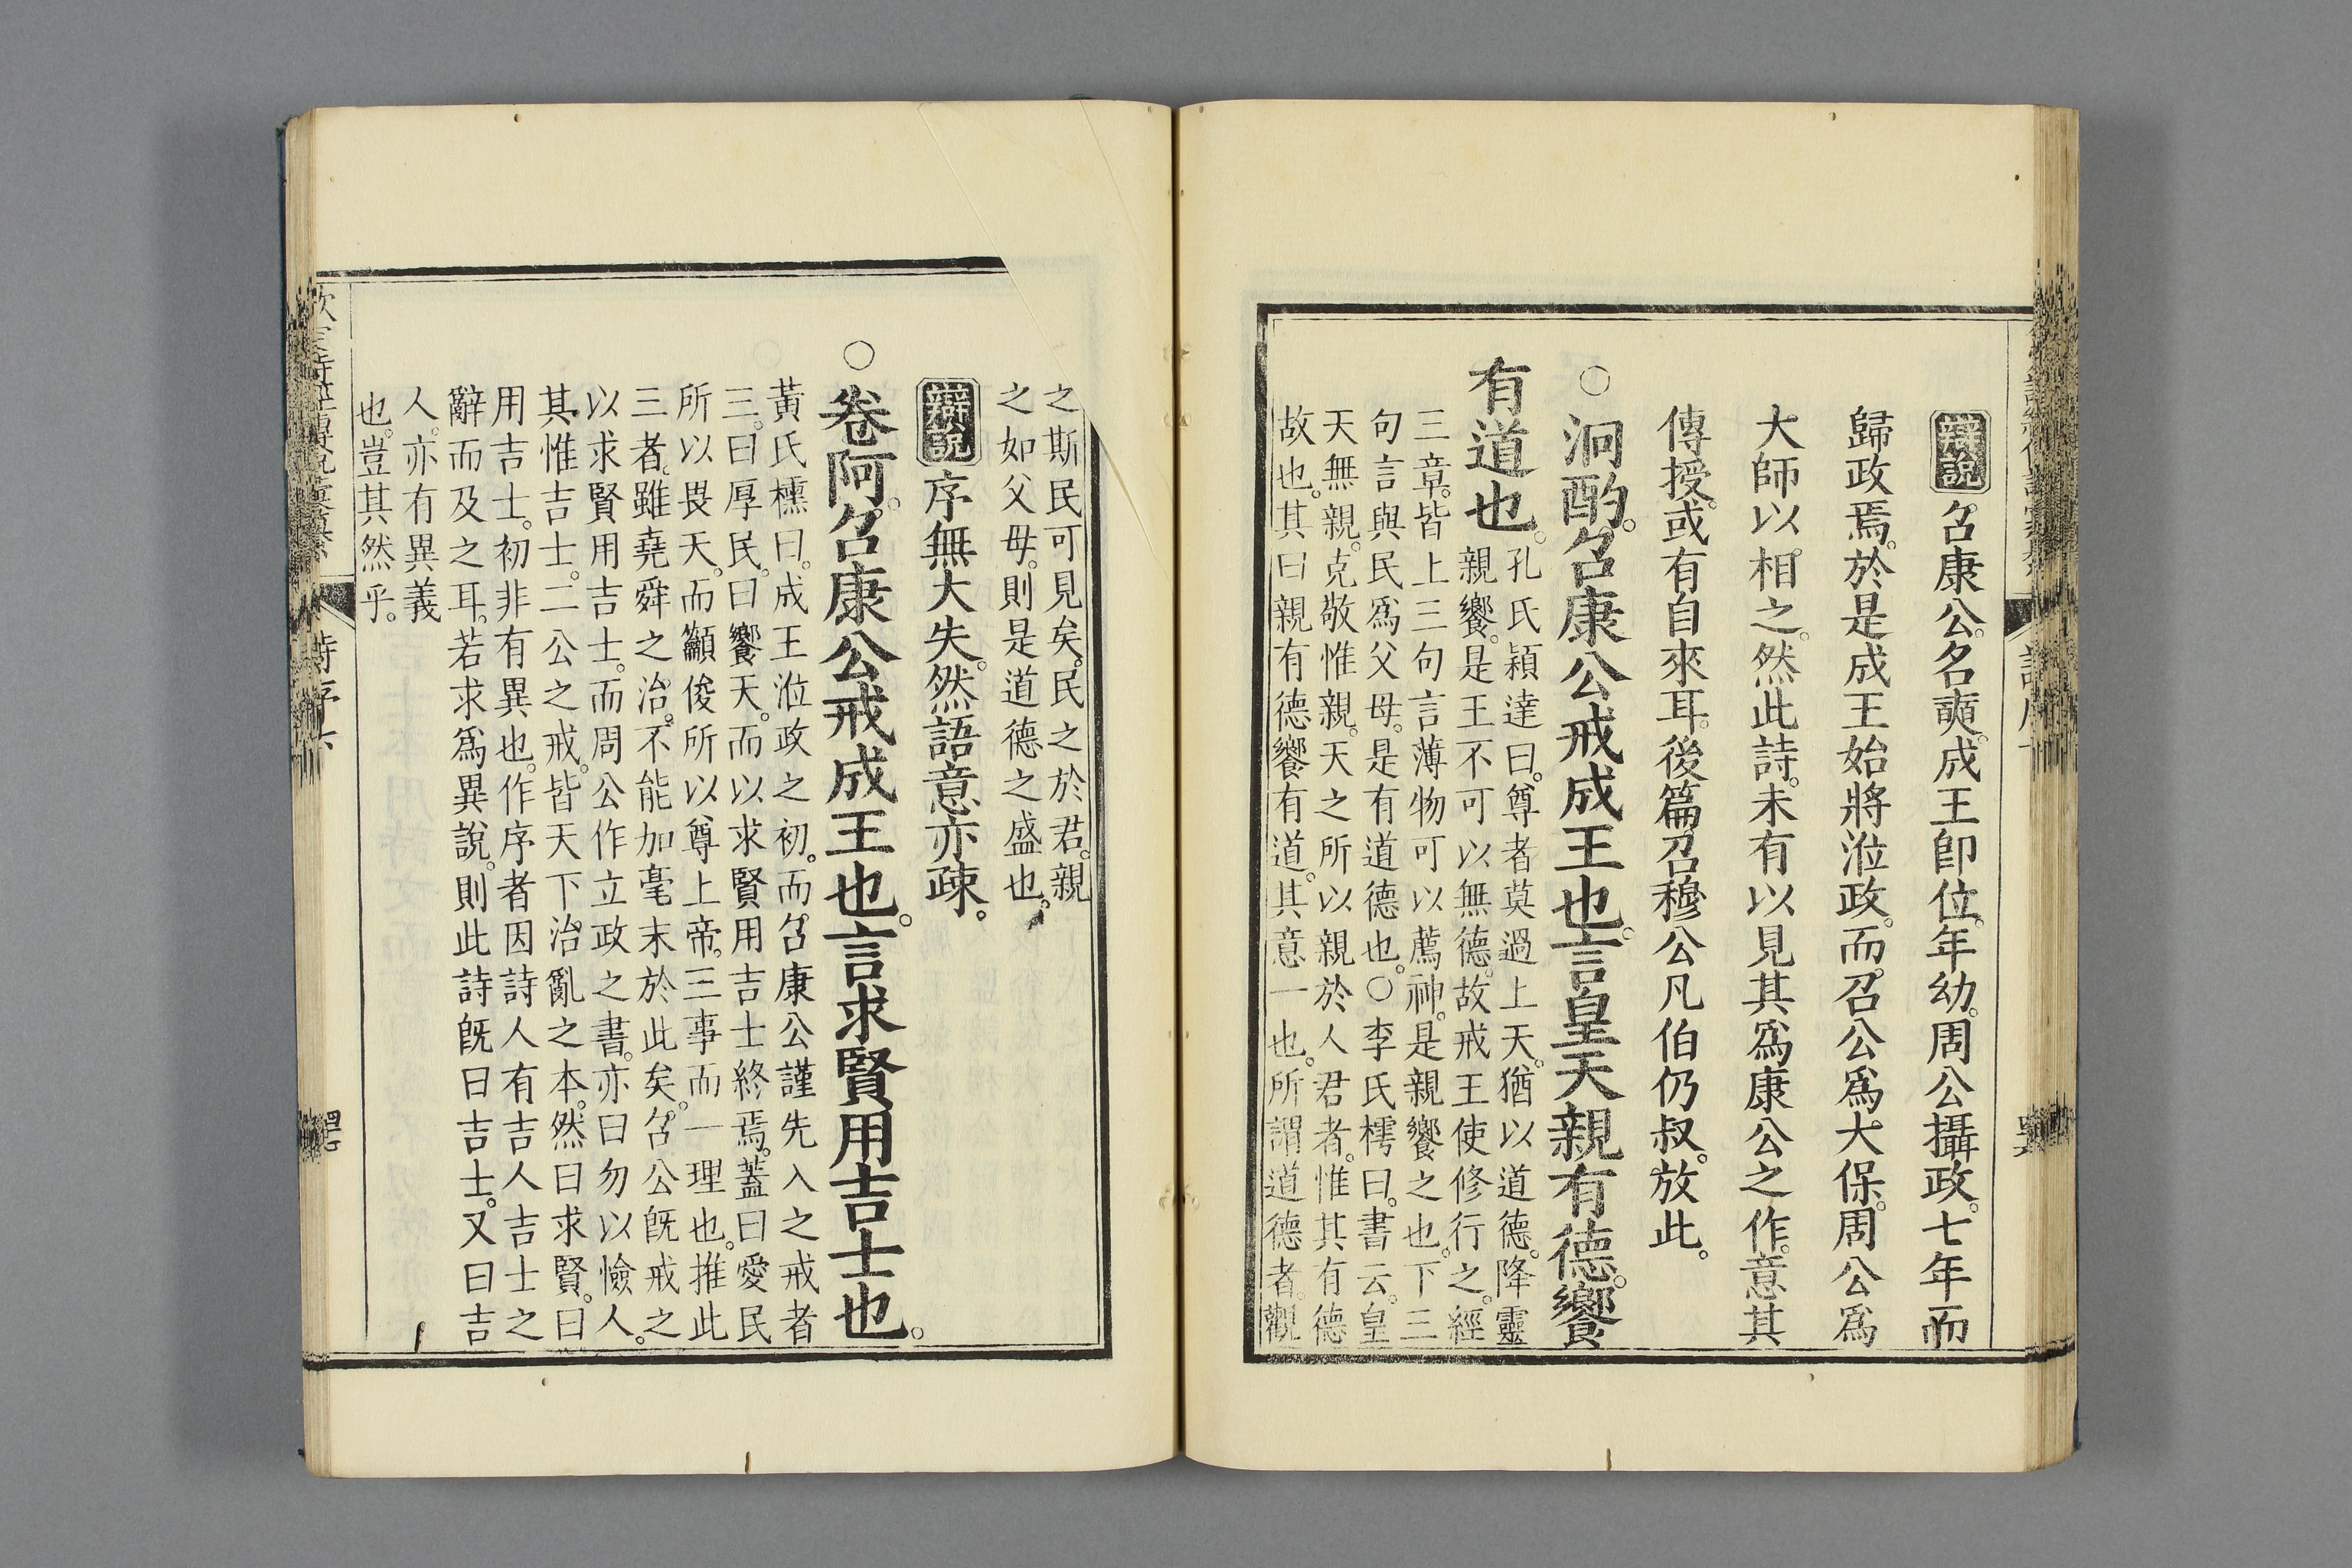 辯說召康公。名奭。成王卽位。年幼。周公攝政。七年而
歸政焉。於是成王始將涖政。而召公爲大保。周公爲
大師以相之。然此詩。未有以見其爲康公之作。意其
傳授。或有自來耳。後篇召穆公凡伯仍叔。放此。
○泂酌。召康公戒成王也。言皇天親有德。饗
有道也。
孔氏穎達曰。尊者莫過上天。猶以道德。降靈
親饗。是王不可以無德。故戒王使修行之。經
三章。皆上三句言薄物可以薦神。是親饗之也。下三
句言與民爲父母。是有道德也。○李氏樗曰。書云。皇
天無親。克敬惟親。天之所以親於人君者。惟其有德
故也。其曰親有德饗有道。其意一也。所謂道德者。觀
之斯民可見矣。民之於君。親
之如父母。則是道德之盛也。
辯說序無大失。然語意亦疎。
○卷阿。召康公戒成王也。言求賢用吉士也。
黃氏櫄曰。成王涖政之初。而召康公謹先入之戒者
三。曰厚民。曰饗天。而以求賢用吉士終焉。蓋曰愛民
所以畏天。而籲俊所以尊上帝。三事而一理也。推此
三者。雖堯舜之治。不能加毫末於此矣。召公旣戒之
以求賢用吉士。而周公作立政之書。亦曰勿以憸人。
其惟吉士。二公之戒。皆天下治亂之本。然曰求賢。曰
用吉士。初非有異也。作序者因詩人有吉人吉士之
辭而及之耳。若求爲異說。則此詩旣曰吉士。又曰吉
人。亦有異義
也。豈其然乎。
詩序下